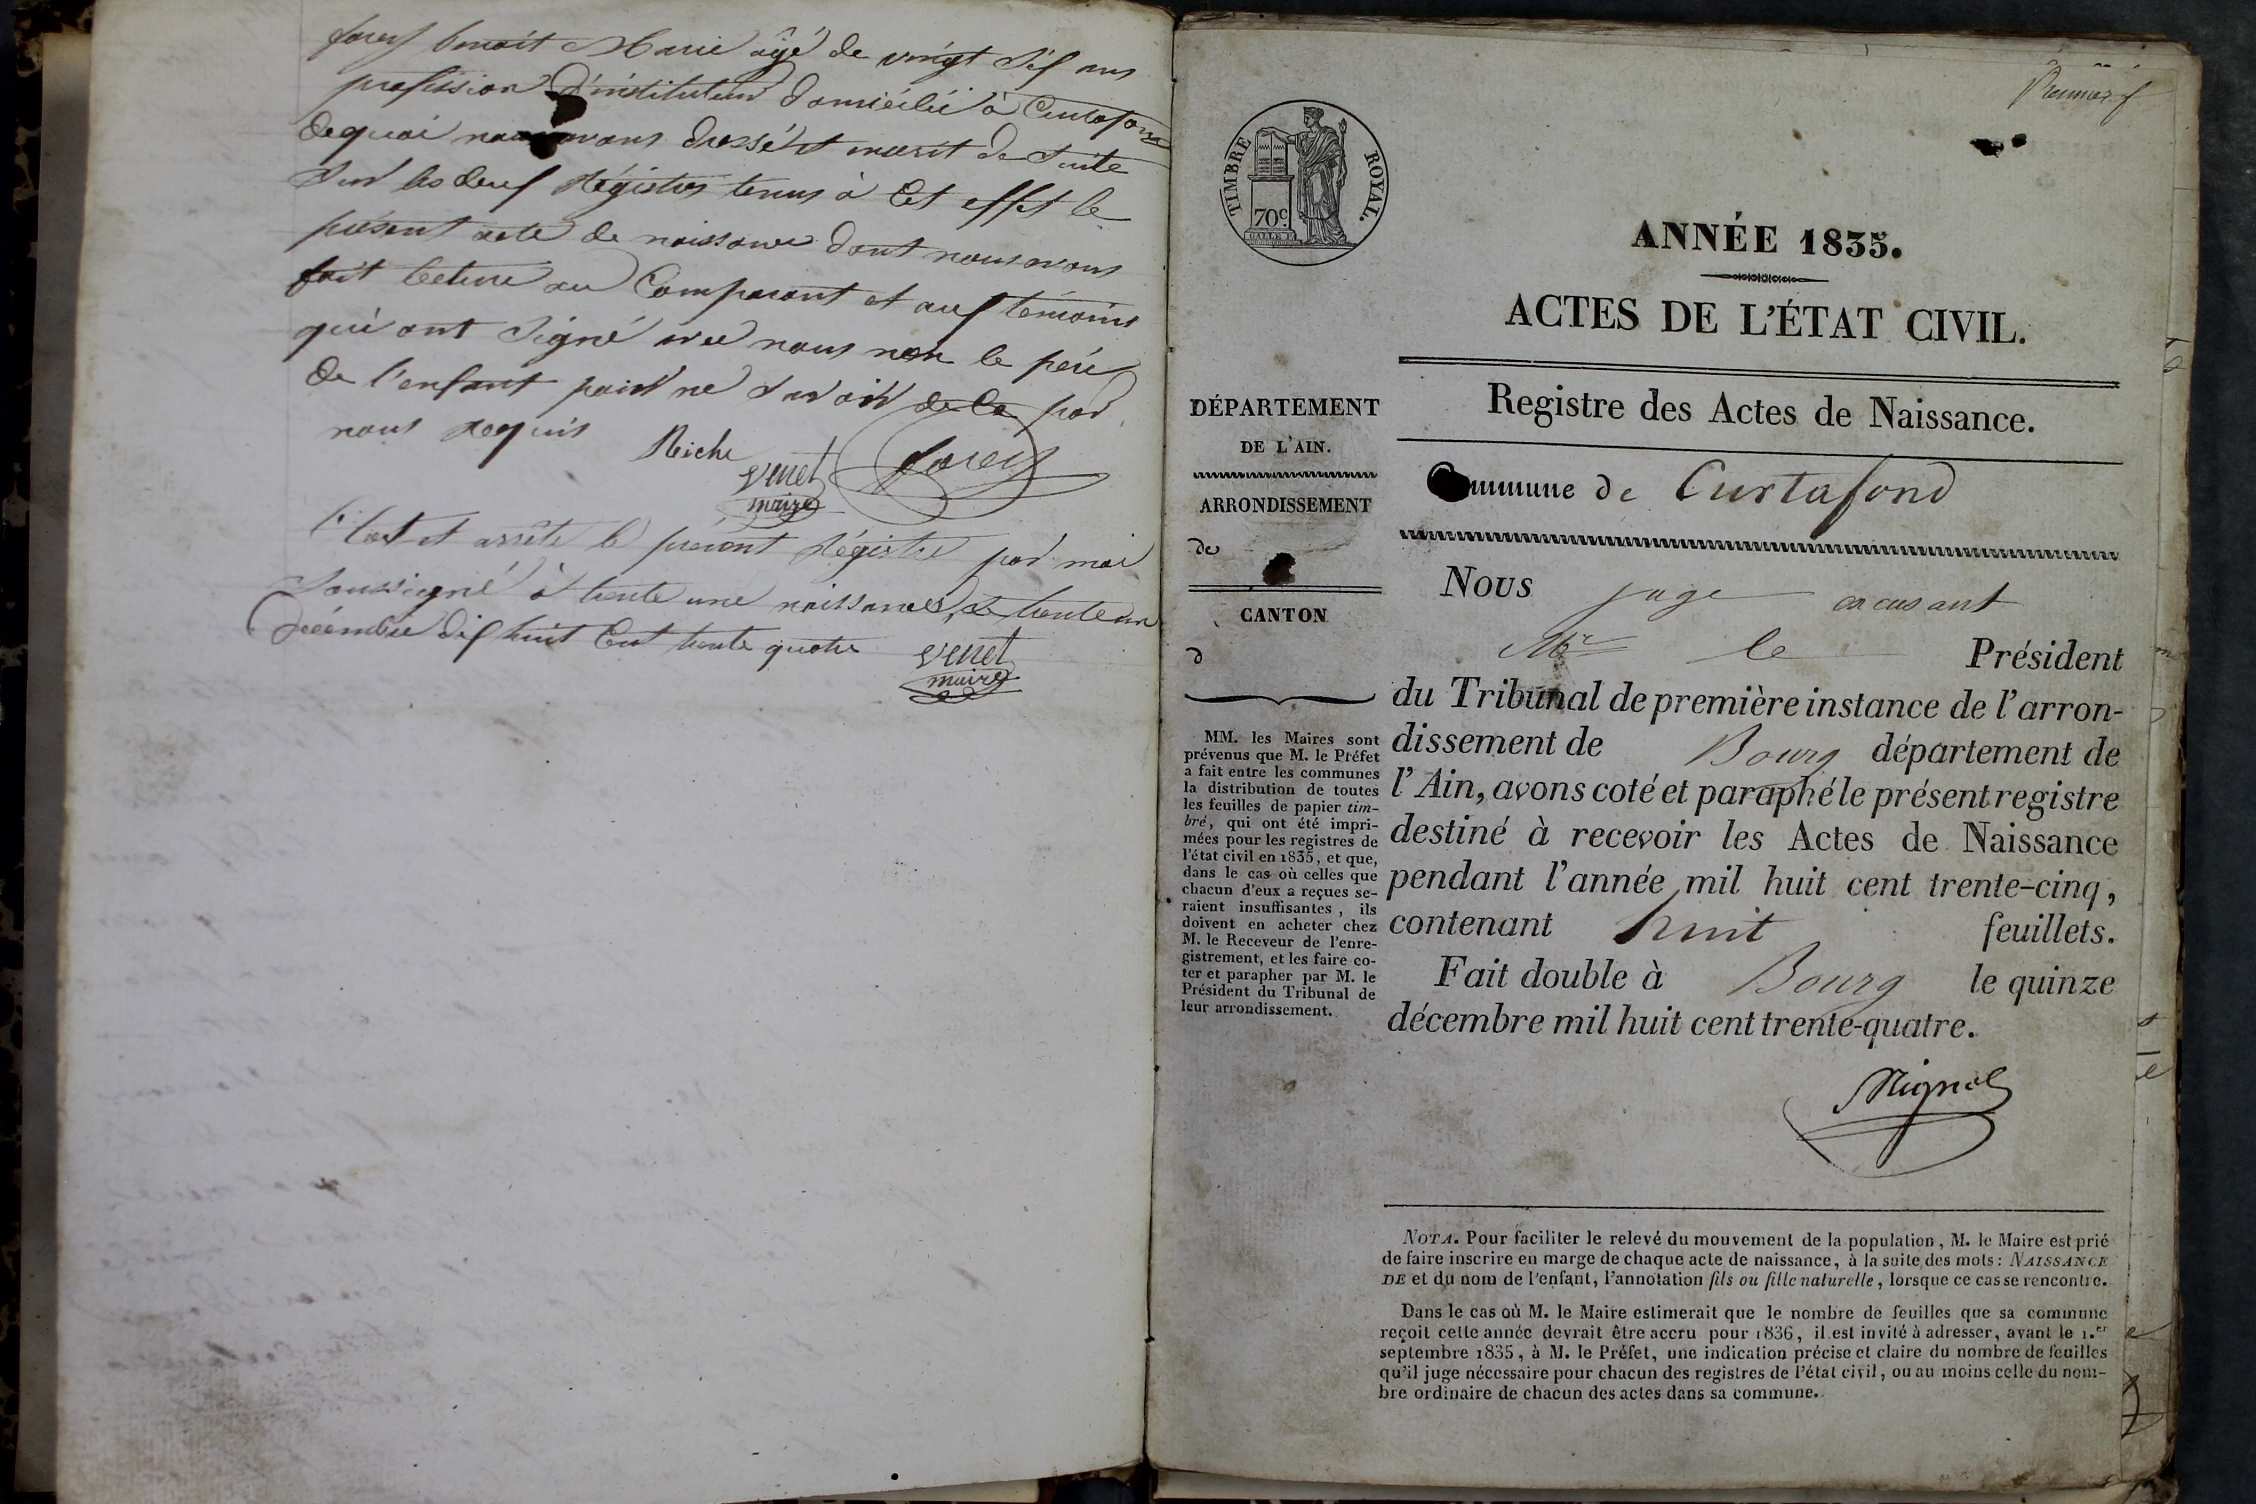 forest benoit Marie âgé de vingt six ans
profession d'instituteur domicilié à Curtafond
de quoi nous avons dressé et inscrit de suite
sur les deux Régistres tenus à cet effet le
présent acte de naissance dont nous avons
fait lecture au Comparant et aux témoins
qui ont signé avec nous non le père
de l'enfant pour ne savoir de ce par
nous requis
Reiche
venet
maire
Clos et arrêté le présent Régistre par moi
soussigné à trente une naissances le trente un
Décembre dix huit Cent trente quatre
venet
maire
Premier f
TIMBRE ROYAL.
70c
ANNÉE 1835.
ACTES DE L'ÉTAT CIVIL.
Registre des Actes de Naissance.
Commune de Curtafond
DÉPARTEMENT
DE L'AIN.
ARRONDISSEMENT
de
CANTON
d
MM. les Maires sont
prévenus que M. le Préfet
a fait entre les communes
la distribution de toutes
les feuilles de papier tim-
bré, qui ont été impri-
mées pour les registres de
l'état civil en 1835, et que,
dans le cas où celles que
chacun d'eux a reçues se-
raient insuffisantes, ils
doivent en acheter chez
M. le Receveur de l'enre-
gistrement, et les faire co-
ter et parapher par M. le
Président du Tribunal de
leur arrondissement.
Nous juge
Mr le Président
du Tribunal de première instance de l'arron-
dissement de Bourg département de
l'Ain, avons coté et paraphé le présent registre
destiné à recevoir les Actes de Naissance
pendant l'année mil huit cent trente-cinq,
contenant huit feuillets.
Fait double à Bourg le quinze
décembre mil huit cent trente-quatre.
NOTA. Pour faciliter le relevé du mouvement de la population, M. le Maire est prié
de faire inscrire en marge de chaque acte de naissance, à la suite des mots: NAISSANCE
DE et du nom de l'enfant, l'annotation fils ou fille naturelle, lorsque ce cas se rencontre.
Dans le cas où M. le Maire estimerait que le nombre de feuilles que sa commune
reçoit cette année devrait être accru pour 1836, il est invité à adresser, avant le 1.er
septembre 1835, à M. le Préfet, une indication précise et claire du nombre de feuilles
qu'il juge nécessaire pour chacun des registres de l'état civil, ou au moins celle du nom-
bre ordinaire de chacun des actes dans sa commune.